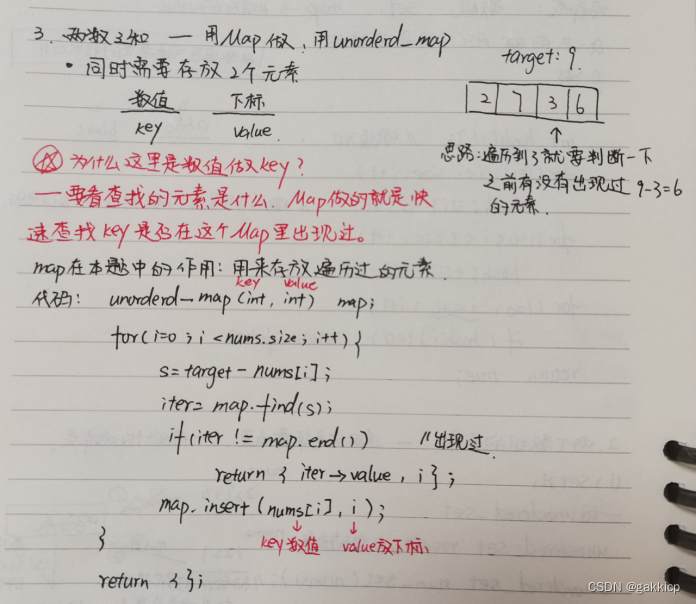 3. 两数之和 — 用Map做，用unorderd_map
· 同时需要存放2个元素
数值 下标
key value
target: 9.
2 7 3 6
↑
思路:遍历到3就要判断一下
之前有没有出现过 9-3=6
的元素.
☆ 为什么这里是数值做key?
一要看查找的元素是什么. Map做的就是快
速查找key是否在这个Map里出现过。
map在本题中的作用: 用来存放遍历过的元素.
key value
代码: unorderd_map (int, int) map;
for(i=0; i<nums.size; i++) {
s=target - nums[i];
iter= map.find(s);
if(iter != map.end()) //出现过.
return { iter→value, i};
map. insert (nums[i], i);
↓ ↓
key数值 value放下标.
}
return {};
CSDN @gakkicp